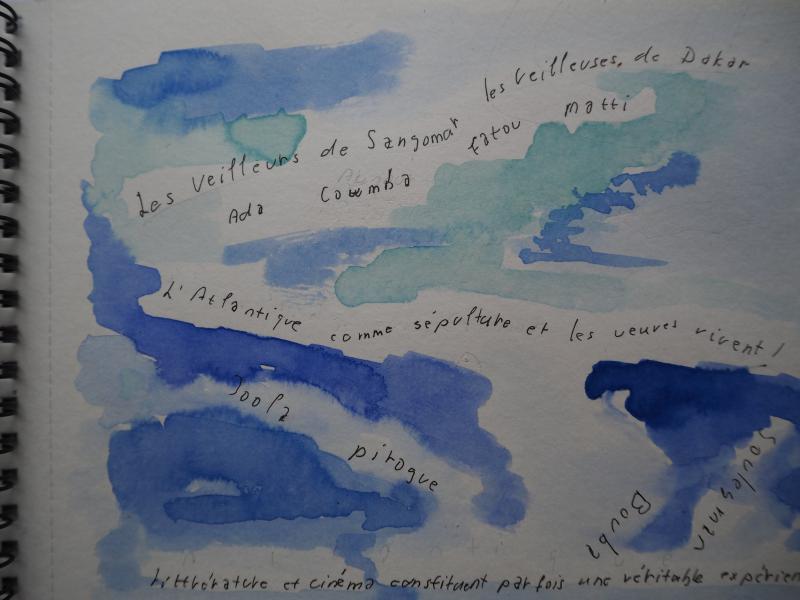 les veilleuses de Dakar
Les veilleurs de Sangomar
fatou matti
Ada Coumba
L'Atlantique comme sépulture et les veuves vivent !
Joola
pirogue
Souleyman
Bouba
Littérature et cinéma constituent parfois une véritable expérien